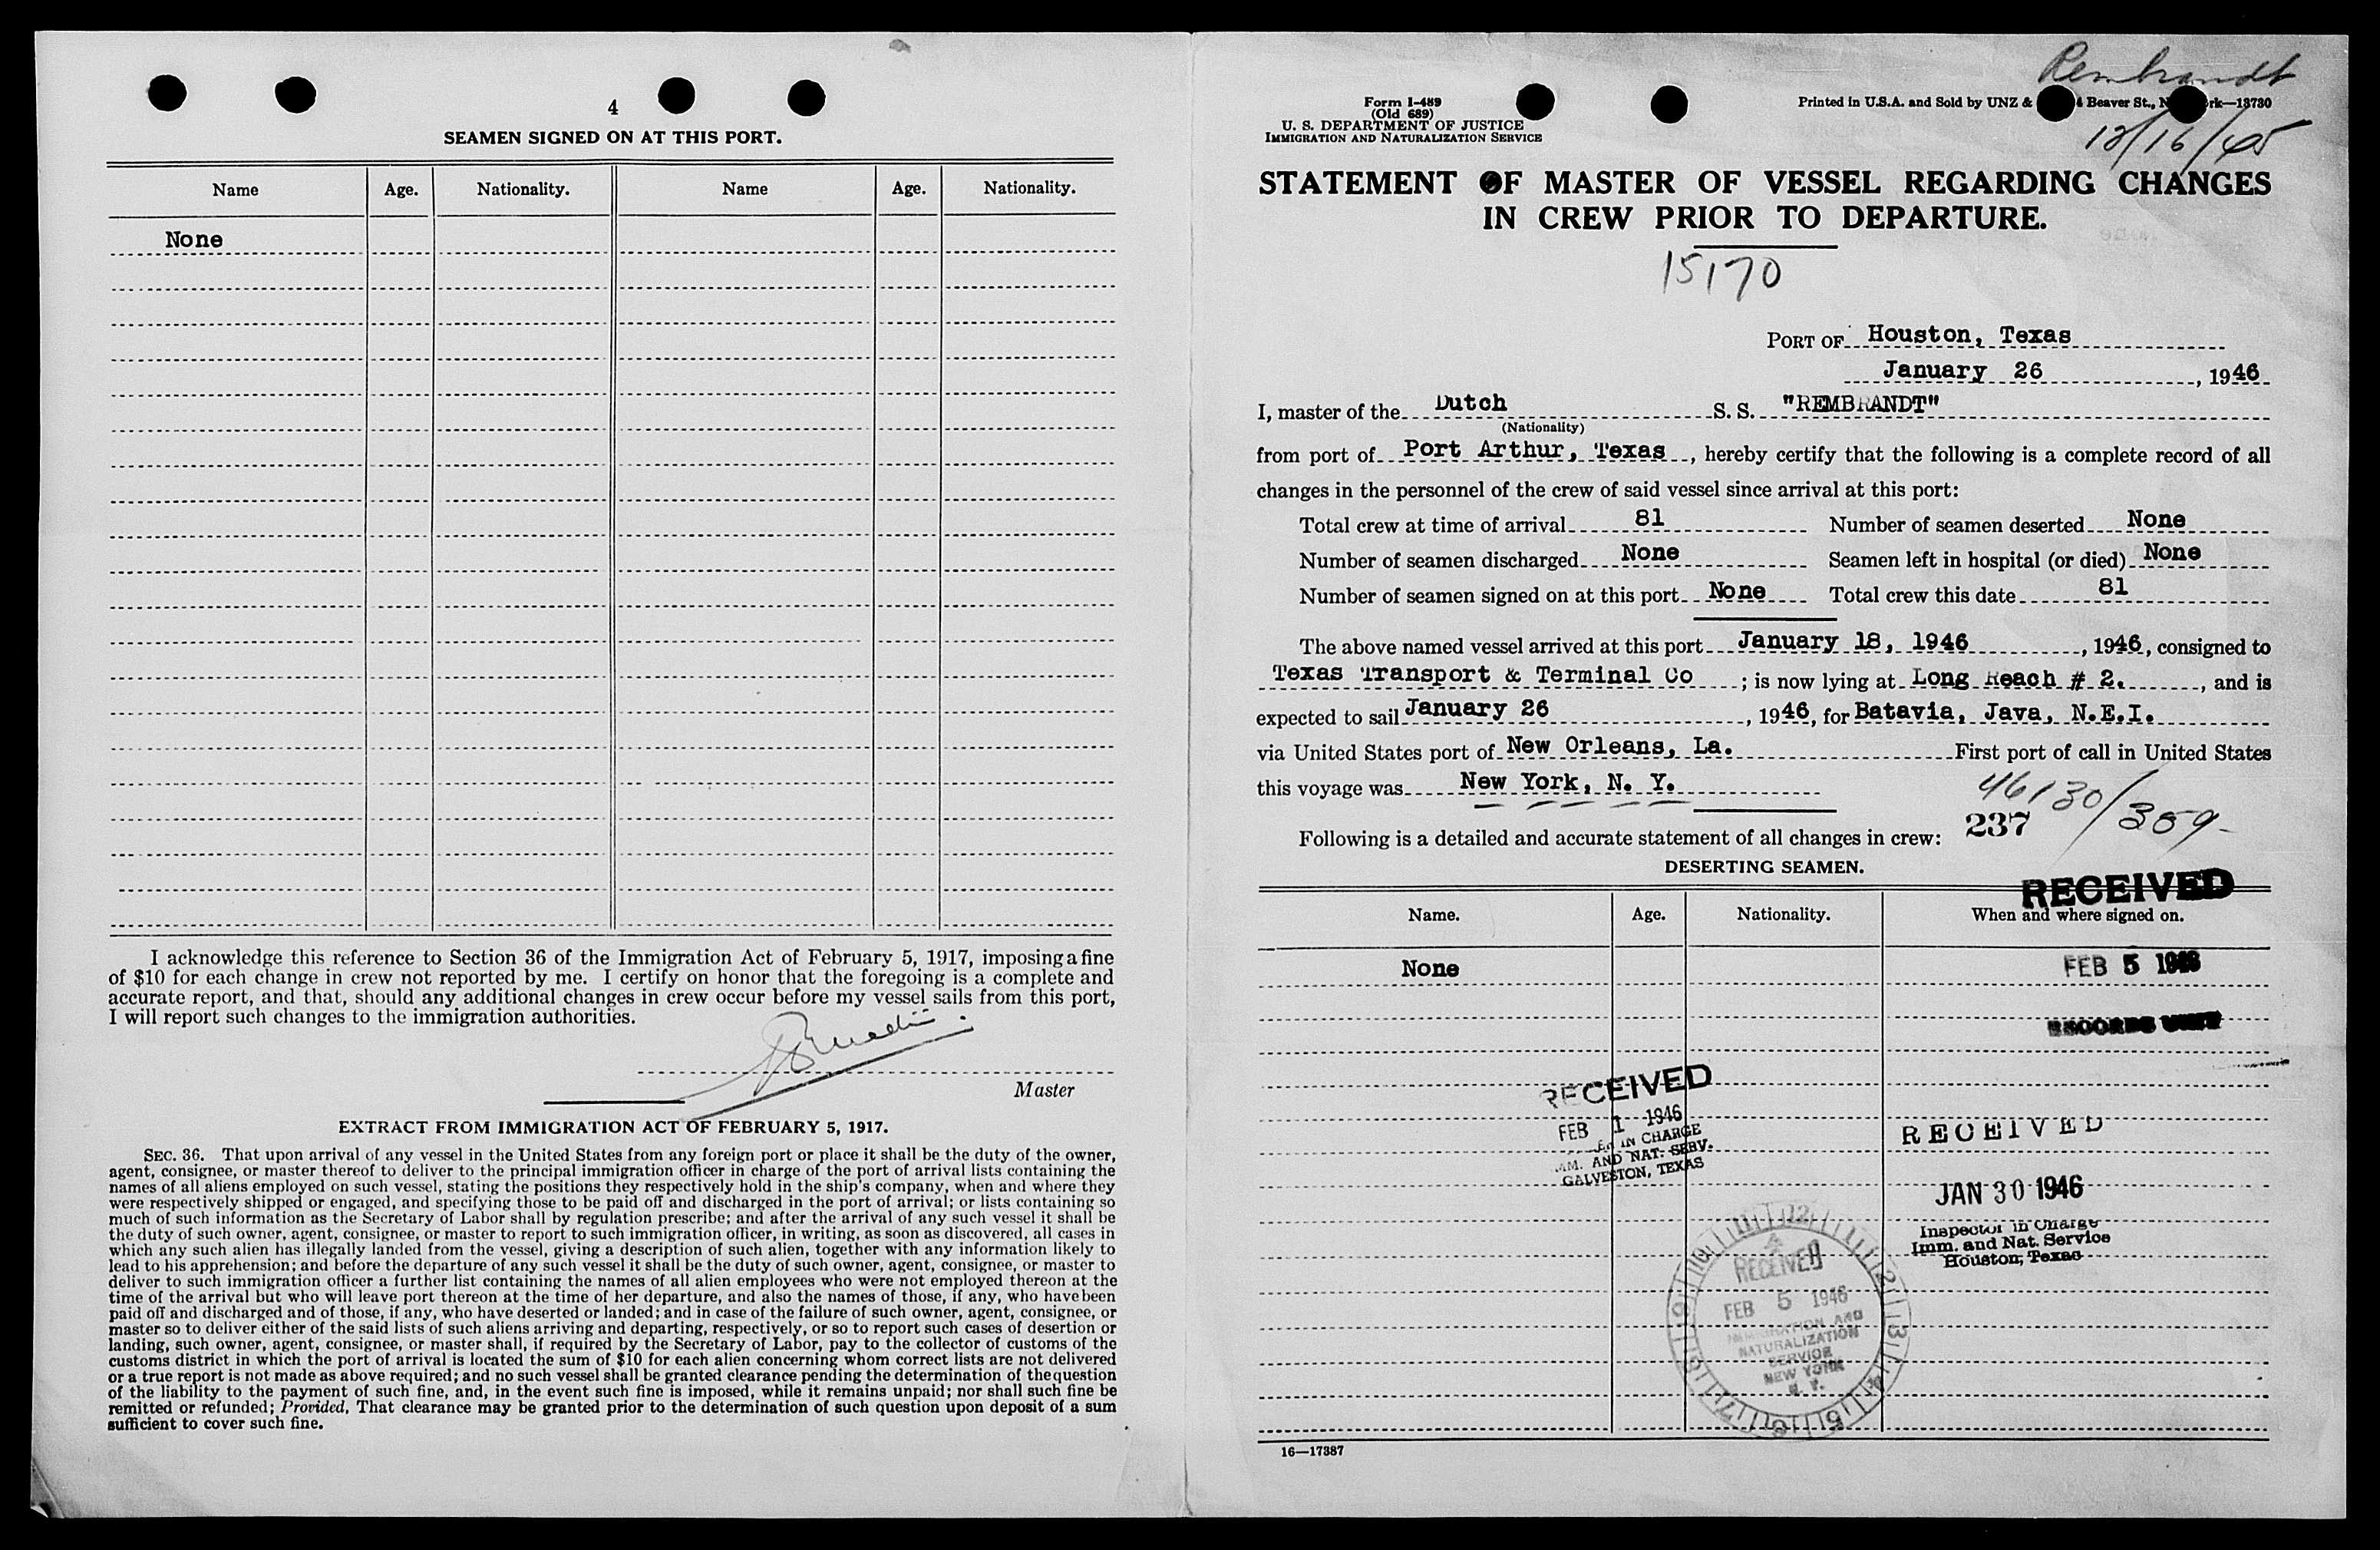 4
SEAMEN SIGNED ON AT THIS PORT.
Name Age. Nationality. Name Age. Nationality.
None
I acknowledge this reference to Section 36 of the Immigration Act of February 5, 1917, imposing a fine
of $10 for each change in crew not reported by me. I certify on honor that the foregoing is a complete and
accurate report, and that, should any additional changes in crew occur before my vessel sails from this port,
I will report such changes to the immigration authorities.
Master
EXTRACT FROM IMMIGRATION ACT OF FEBRUARY 5, 1917.
SEC. 36. That upon arrival of any vessel in the United States from any foreign port or place it shall be the duty of the owner,
agent, consignee, or master thereof to deliver to the principal immigration officer in charge of the port of arrival lists containing the
names of all aliens employed on such vessel, stating the positions they respectively hold in the ship's company, when and where they
were respectively shipped or engaged, and specifying those to be paid off and discharged in the port of arrival; or lists containing so
much of such information as the Secretary of Labor shall by regulation prescribe; and after the arrival of any such vessel it shall be
the duty of such owner, agent, consignee, or master to report to such immigration officer, in writing, as soon as discovered, all cases in
which any such alien has illegally landed from the vessel, giving a description of such alien, together with any information likely to
lead to his apprehension; and before the departure of any such vessel it shall be the duty of such owner, agent, consignee, or master to
deliver to such immigration officer a further list containing the names of all alien employees who were not employed thereon at the
time of the arrival but who will leave port thereon at the time of her departure, and also the names of those, if any, who have been
paid off and discharged and of those, if any, who have deserted or landed; and in case of the failure of such owner, agent, consignee, or
master so to deliver either of the said lists of such aliens arriving and departing, respectively, or so to report such cases of desertion or
landing, such owner, agent, consignee, or master shall, if required by the Secretary of Labor, pay to the collector of customs of the
customs district in which the port of arrival is located the sum of $10 for each alien concerning whom correct lists are not delivered
or a true report is not made as above required; and no such vessel shall be granted clearance pending the determination of the question
of the liability to the payment of such fine, and, in the event such fine is imposed, while it remains unpaid; nor shall such fine be
remitted or refunded; Provided, That clearance may be granted prior to the determination of such question upon deposit of a sum
sufficient to cover such fine.
Rembrandt
Form I-489
(Old 689)
U. S. DEPARTMENT OF JUSTICE
IMMIGRATION AND NATURALIZATION SERVICE
Printed in U.S.A. and Sold by UNZ & Beaver St., 13730
12/16/45
STATEMENT OF MASTER OF VESSEL REGARDING CHANGES
IN CREW PRIOR TO DEPARTURE.
15170
PORT OF Houston, Texas
January 26, 1946
I, master of the Dutch S. S. "REMBRANDT"
(Nationality)
from port of Port Arthur, Texas, hereby certify that the following is a complete record of all
changes in the personnel of the crew of said vessel since arrival at this port:
Total crew at time of arrival 81 Number of seamen deserted None
Number of seamen discharged None Seamen left in hospital (or died) None
Number of seamen signed on at this port None Total crew this date 81
The above named vessel arrived at this port January 18, 1946, 1946, consigned to
Texas Transport & Terminal Co; is now lying at Long Reach # 2., and is
expected to sail January 26, 1946, for Batavia, Java, N.E.I.
via United States port of New Orleans, La. First port of call in United States
this voyage was New York, N. Y.
46130/359-
237
Following is a detailed and accurate statement of all changes in crew:
DESERTING SEAMEN.
RECEIVED
Name. Age. Nationality. When and where signed on.
None
FEB 5 1946
RECORDS UNIT
RECEIVED
FEB 1 1946
IN CHARGE
IMM. AND NAT. SERV.
GALVESTON, TEXAS
RECEIVED
JAN 30 1946
Inspector in Charge
Imm. and Nat. Service
Houston, Texas
RECEIVED
FEB 5 1946
IMMIGRATION AND
NATURALIZATION
SERVICE
NEW YORK
N. Y.
16—17387